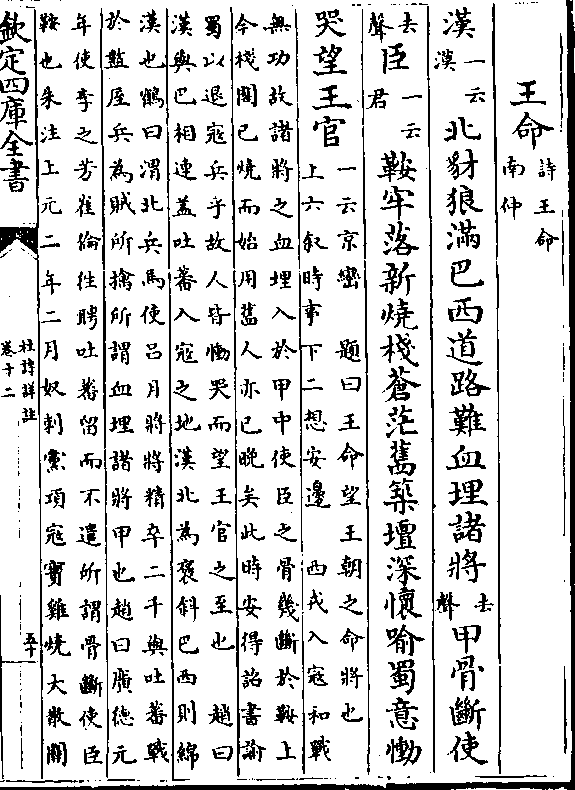 王命詩王命南仲
漢一云漢北豺狼滿巴西道路難血埋諸將去聲甲骨斷使
去聲臣一云君鞍牢落新燒棧蒼茫舊築壇深懷喻蜀意慟
哭望王官一云京巒 題曰王命望王朝之命將也
上六叙時事下二想安邊 西戎入寇和戰
無功故諸將之血埋入於甲中使臣之骨幾斷於鞍上
今棧閣已燒而始用舊人亦已晚矣此時安得詔書諭
蜀以退寇兵乎故人皆慟哭而望王官之至也 趙曰
漢與巴相連蓋吐蕃入寇之地漢北為褒斜巴西則綿
漢也鶴曰渭北兵馬使吕月將將精卒二千與吐蕃戰
於盩厔兵為賊所擒所謂血埋諸將甲也趙曰廣德元
年使李之芳崔倫徃聘吐蕃留而不遣所謂骨斷使臣
鞍也朱注上元二年二月奴刺黨項寇寶雞燒大散關
欽定四庫全書
杜詩詳註
卷十二
五十